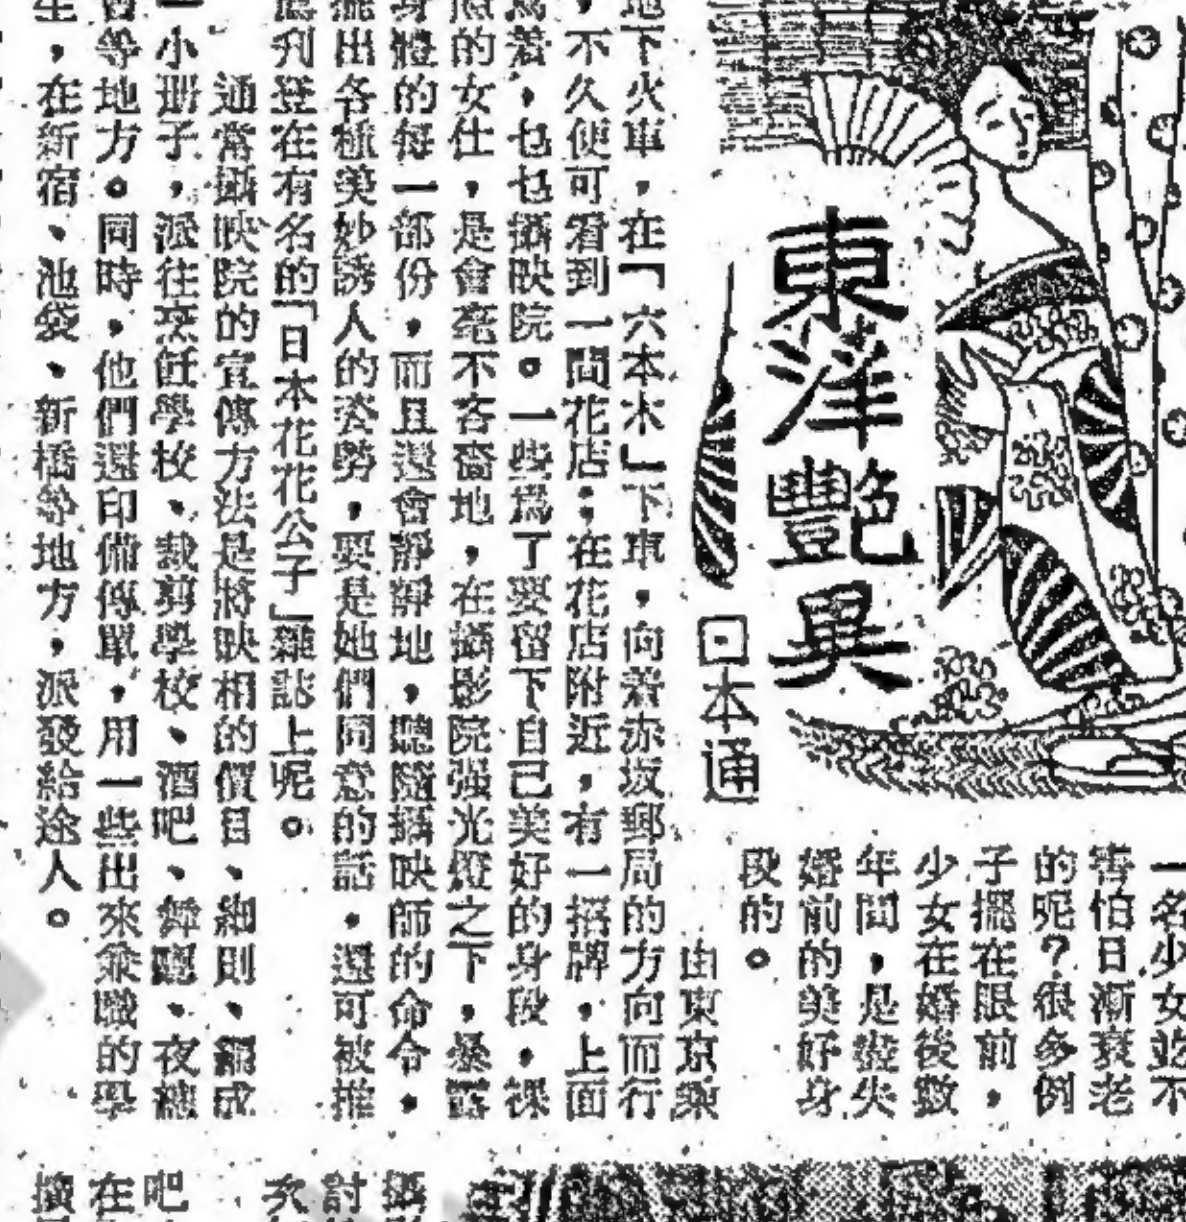 東洋艷異
日本通
一名少女並不
害怕日漸衰老
的呢？很多例
子擺在眼前，
少女在婚後數
年間，是盡失
婚前的美好身
段的。
由東京乘
地下火車，在「六本木」下車，向着赤坂郵局的方向而行
，不久便可看到一間花店；在花店附近，有一招牌，上面
寫着，乜乜攝映院。一些爲了要留下自己美好的身段，裸
照的女仕，是會毫不吝嗇地，在攝影院强光燈之下，暴露
身體的每一部份，而且還會靜靜地，聽隨攝映師的命令，
擺出各種美妙誘人的姿勢，要是她們同意的話，還可被推
薦刊登在有名的「日本花花公子」雜誌上呢。
通常攝映院的宣傳方法是將映相的價目、細則、編成
一小册子，派往烹飪學校、裁剪學校、酒吧、舞廳、夜總
會等地方。同時，他們還印備傳單，用一些出來兼職的學
生，在新宿、池袋、新橋等地方，派發給途人。
攝
討
次
吧
在